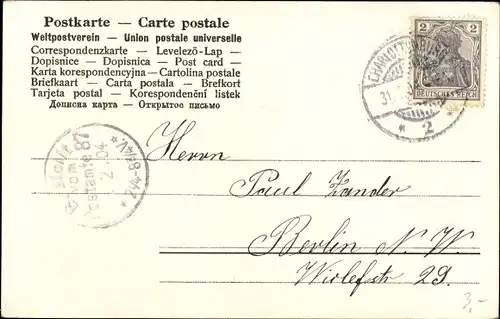 Postkarte — Carte postale
Weltpostverein — Union postale universelle
Correspondenzkarte — Levelezö-Lap —
Dopisnice — Dopisnica — Post card —
Karta korespondencyjna — Cartolina postale
Briefkaart — Carta postala — Brefkort
Tarjeta postal — Korespondenční listek
Дописна карта — Открытое письмо
2 2
DEUTSCHES REICH
CHARLOTTENBURG
31
* 2 *
Bestellt
vom
Postamte 87
2 04
* 7¼-8¼V. *
Herrn
Paul Zander
Berlin N. W.
29.
3,-